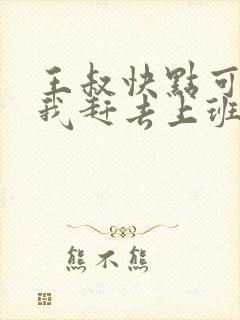 王叔快點可
我赶去上班
熊不熊